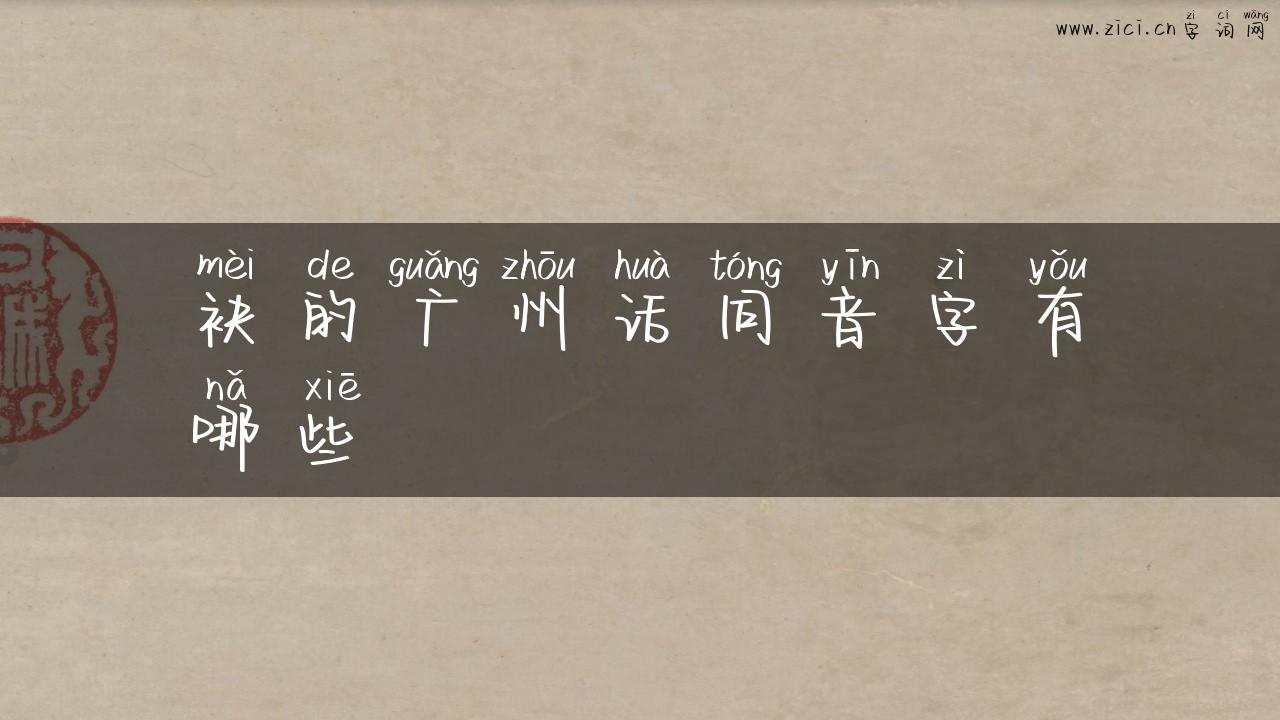 zì cí wǎng
www.zici.cn 字 词 网
mèi de guǎng zhōu huà tóng yīn zì yǒu
袂 的 广 州 话 同 音 字 有
nǎ xiē
哪 些